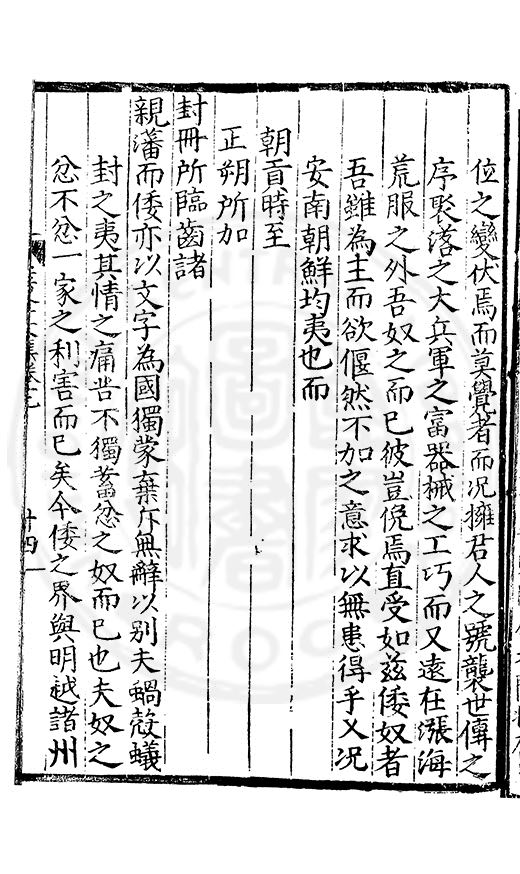 位之變伏焉而莫覺者而况擁君人之號襲世傳之
序聚落之大兵軍之富器械之工巧而又遠在漲海
荒服之外吾奴之而已彼豈俛焉直受如茲倭奴者
吾雖為主而欲偃然不加之意求以無患得乎又况
安南朝鮮均夷也而
朝貢時至
正朔所加
封冊所臨齒諸
親藩而倭亦以文字為國獨蒙棄斥無辭以别夫蝸殼蟻
封之夷其情之痛𠰥不獨蓄忿之奴而已也夫奴之
忿不忿一家之利害而已矣今倭之界與明越諸州
文集卷之
十四